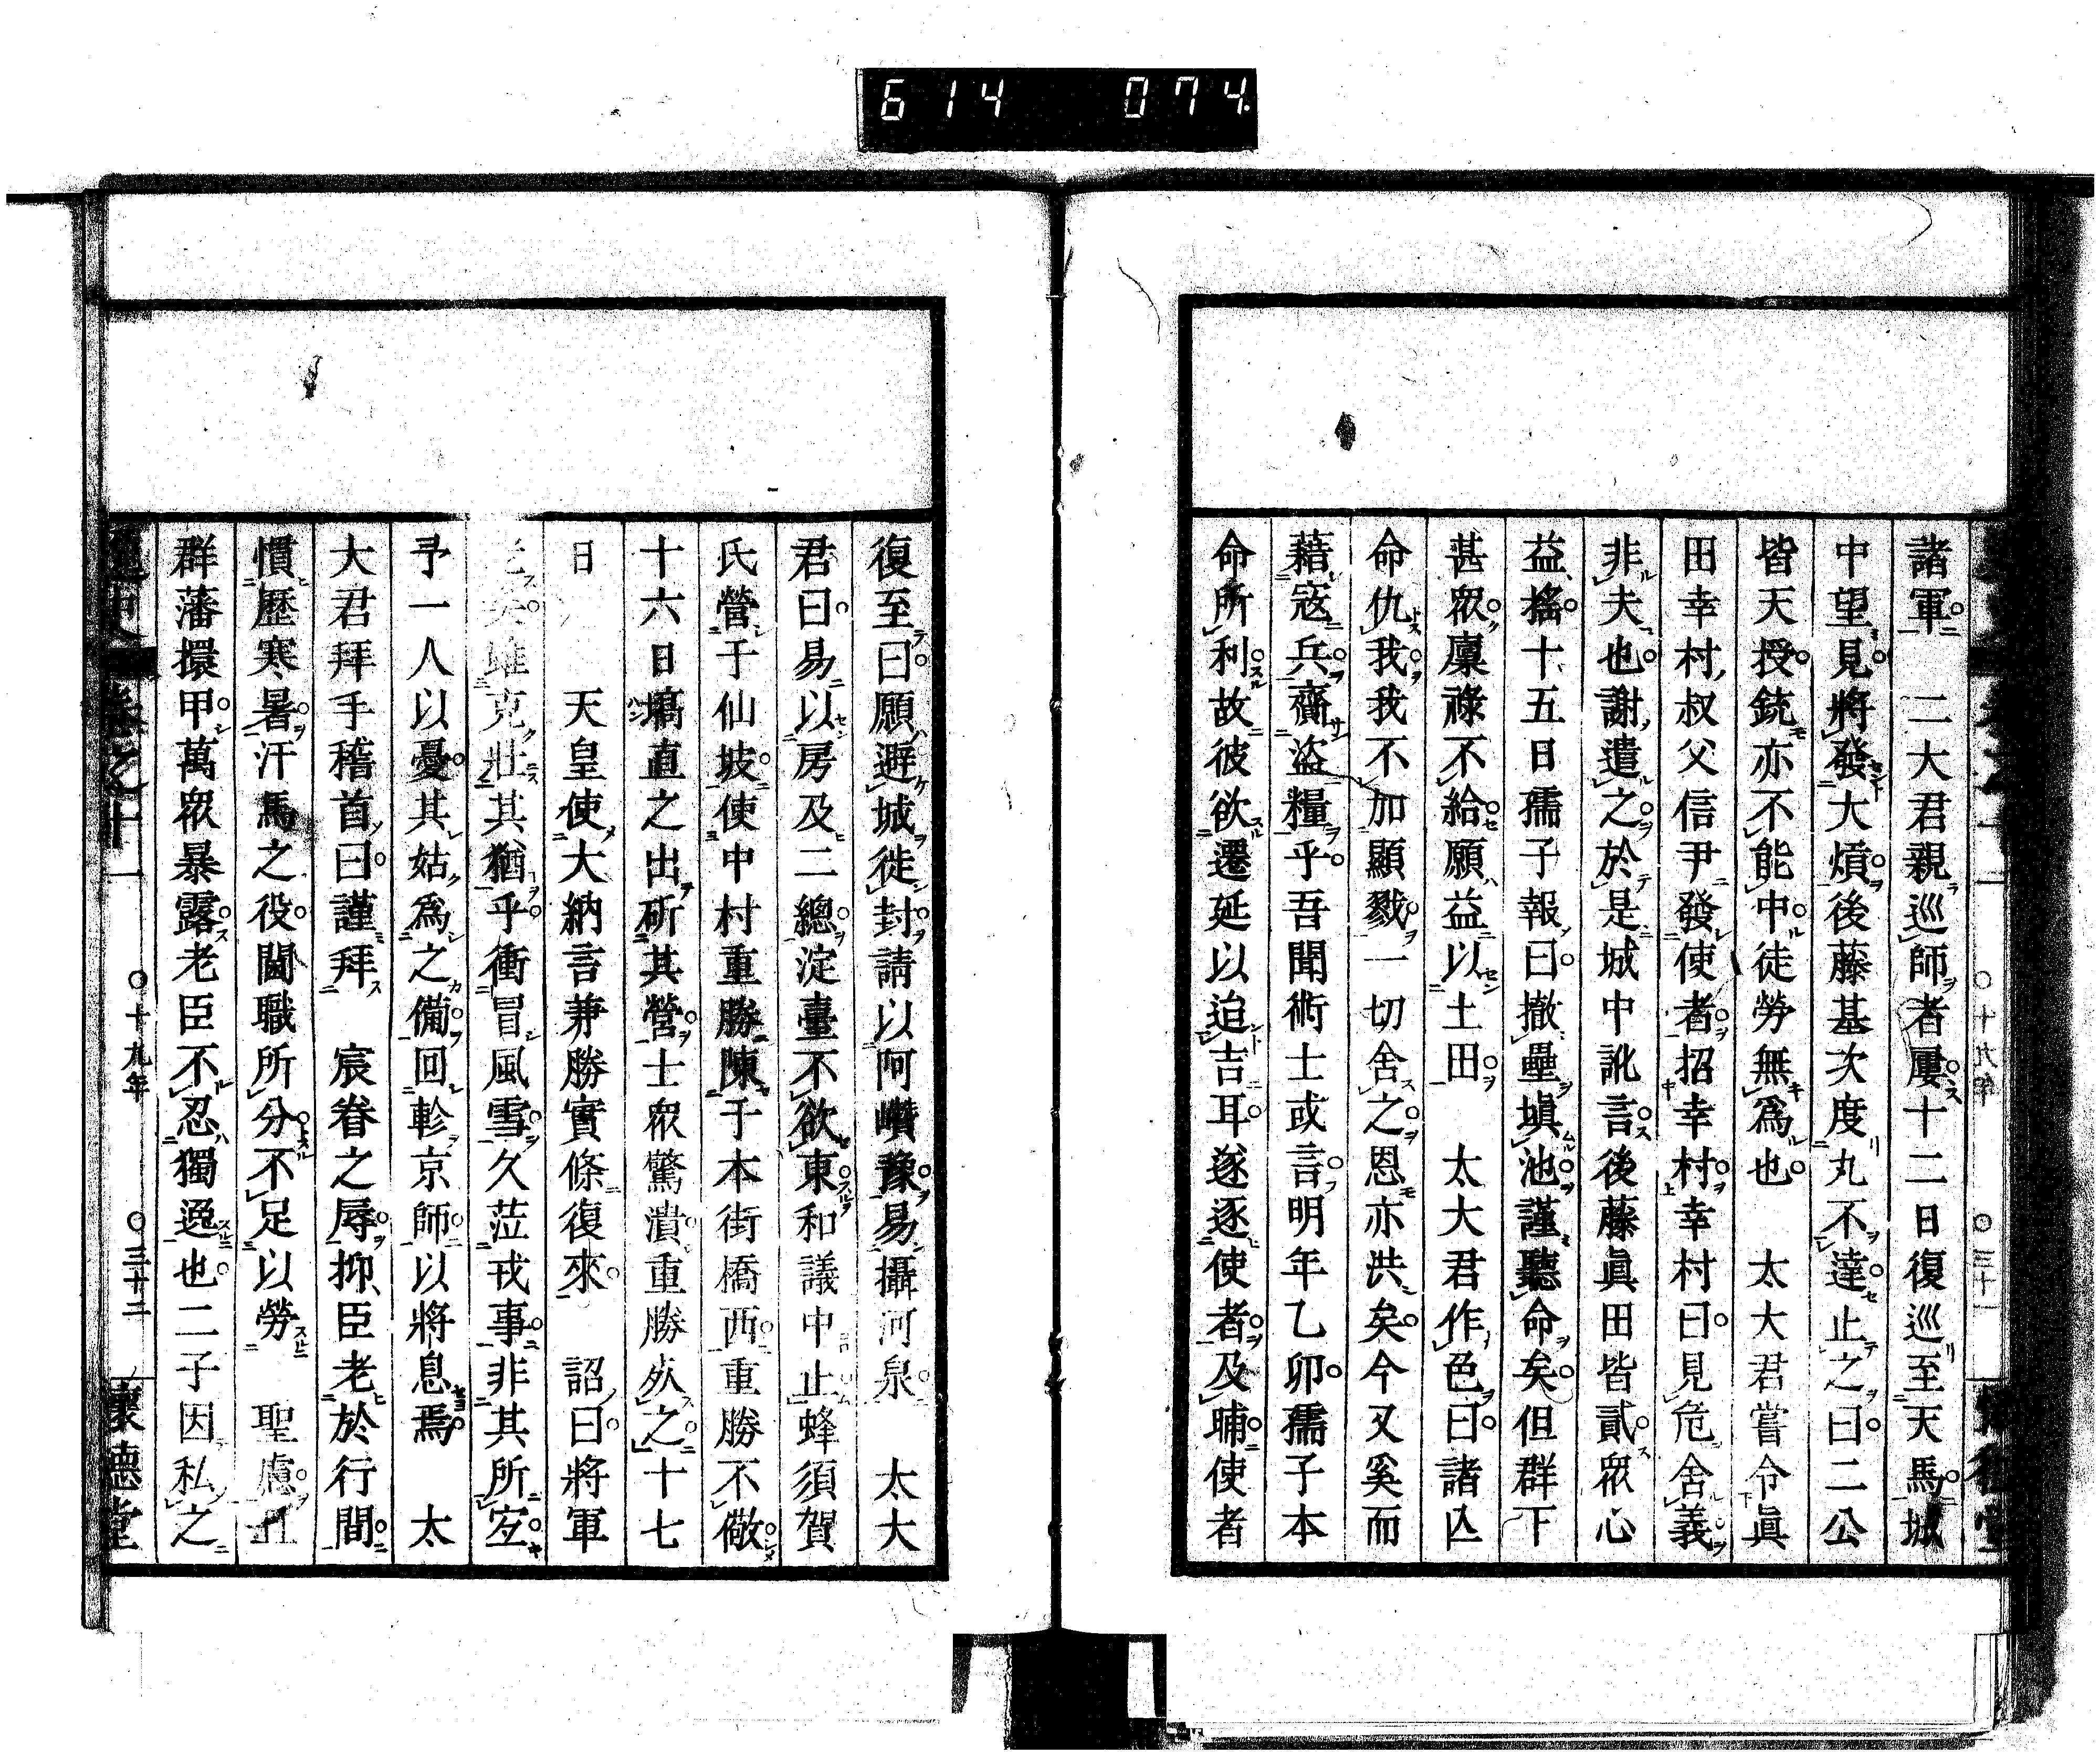 614 074
諸軍二大君親巡師者屢十二日復巡至天馬城
中望見將發大煩後藤基次度丸不達止之曰二公
皆天授銃亦不能中徒勞無爲也太大君嘗令眞
田幸村叔父信尹發使者招幸村幸村曰見危舍義
非夫也謝遣之於是城中訛言後藤眞田皆貳衆心
益搖十五日孺子報曰撤壘塡池謹聽命矣但群下
甚衆廩祿不給願益以土田太大君作色曰諸亾
命仇我我不加顯戮一切舍之恩亦洪矣今又奚而
藉寇兵齎盜糧乎吾聞術士或言明年乙卯孺子本
命所利故彼欲遷延以迫吉耳遂逐使者及晡使者
復至曰願避城徙封請以阿讚豫易攝河泉太大
君曰易以房及二總淀臺不欲東和議中止蜂須賀
氏營于仙坡使中村重勝陳于本街橋西重勝不儆
十六日塙直之出斫其營士衆驚潰重勝死之十七
日天皇使大納言兼勝實條復來詔曰將軍
雖克壯其猶乎衝冒風雪久莅戎事非其所宜
予一人以憂其姑爲之備回軫京師以將息焉太
大君拜手稽首曰謹拜宸眷之辱抑臣老於行間
慣歷寒暑汗馬之役閫職所分不足以勞聖慮且
群藩擐甲萬衆暴露老臣不忍獨逸也二子因私之
卷之十一 〇十九年 〇三十二 懷德堂